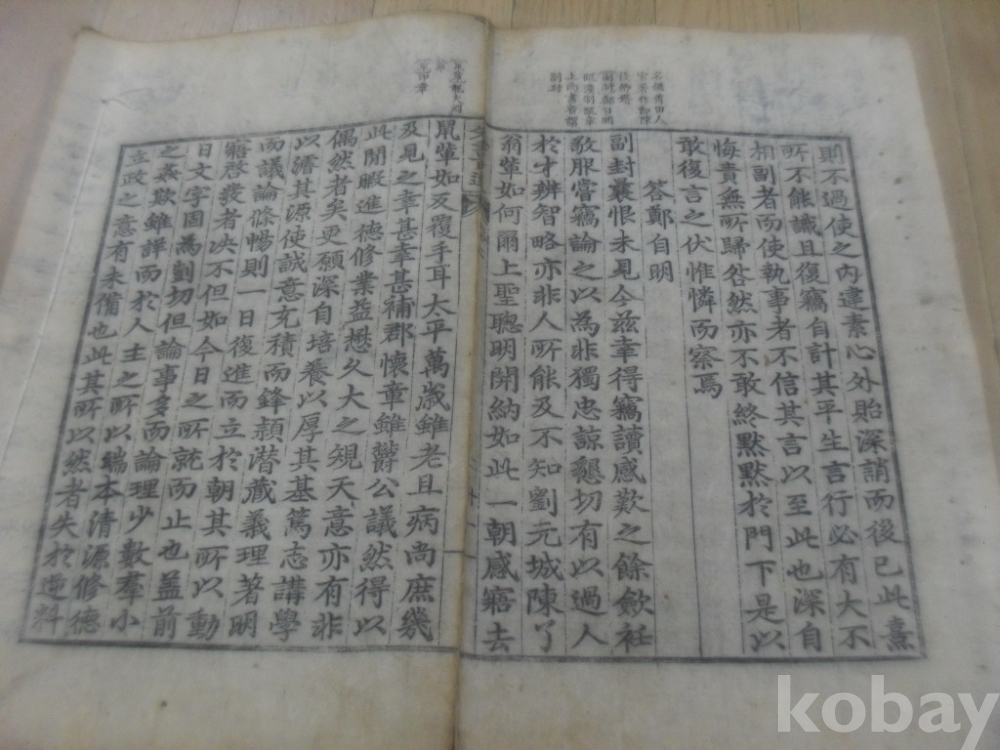 則不過使之內違素心外貽深誚而後已此熹
所不能識且復竊自計其平生言行必有大不
相副者而使執事者不信其言以至此也深自
悔責無所歸咎然亦不敢終默默於門下是以
敢復言之伏惟憐而察焉
答鄭自明
副封曩恨未見今茲幸得竊讀感歎之餘斂衽
敬服嘗竊論之以為非獨忠諒懇切有以過人
於才辨智略亦非人所能及不知劉元城陳了
翁輩如何爾上聖聰明開納如此一朝感寤去
鼠輩如反覆手耳太平萬歲雖老且病尚庶幾
及見之幸甚幸甚補郡懷章雖鬱公議然得以
此閒暇進德修業益懋久大之規天意亦有非
偶然者矣更願深自培養以厚其基篤志講學
以濬其源使誠意充積而鋒穎潛藏義理著明
而議論條暢則一日復進而立於朝其所以動
寤啓發者决不但如今日之所就而止也益前
日文字固為剴切但論事多而論理少數羣小
之姦欺雖詳而於人主之所以端本清源修德
立政之意有未備也此其所以然者失於逆料
kobay